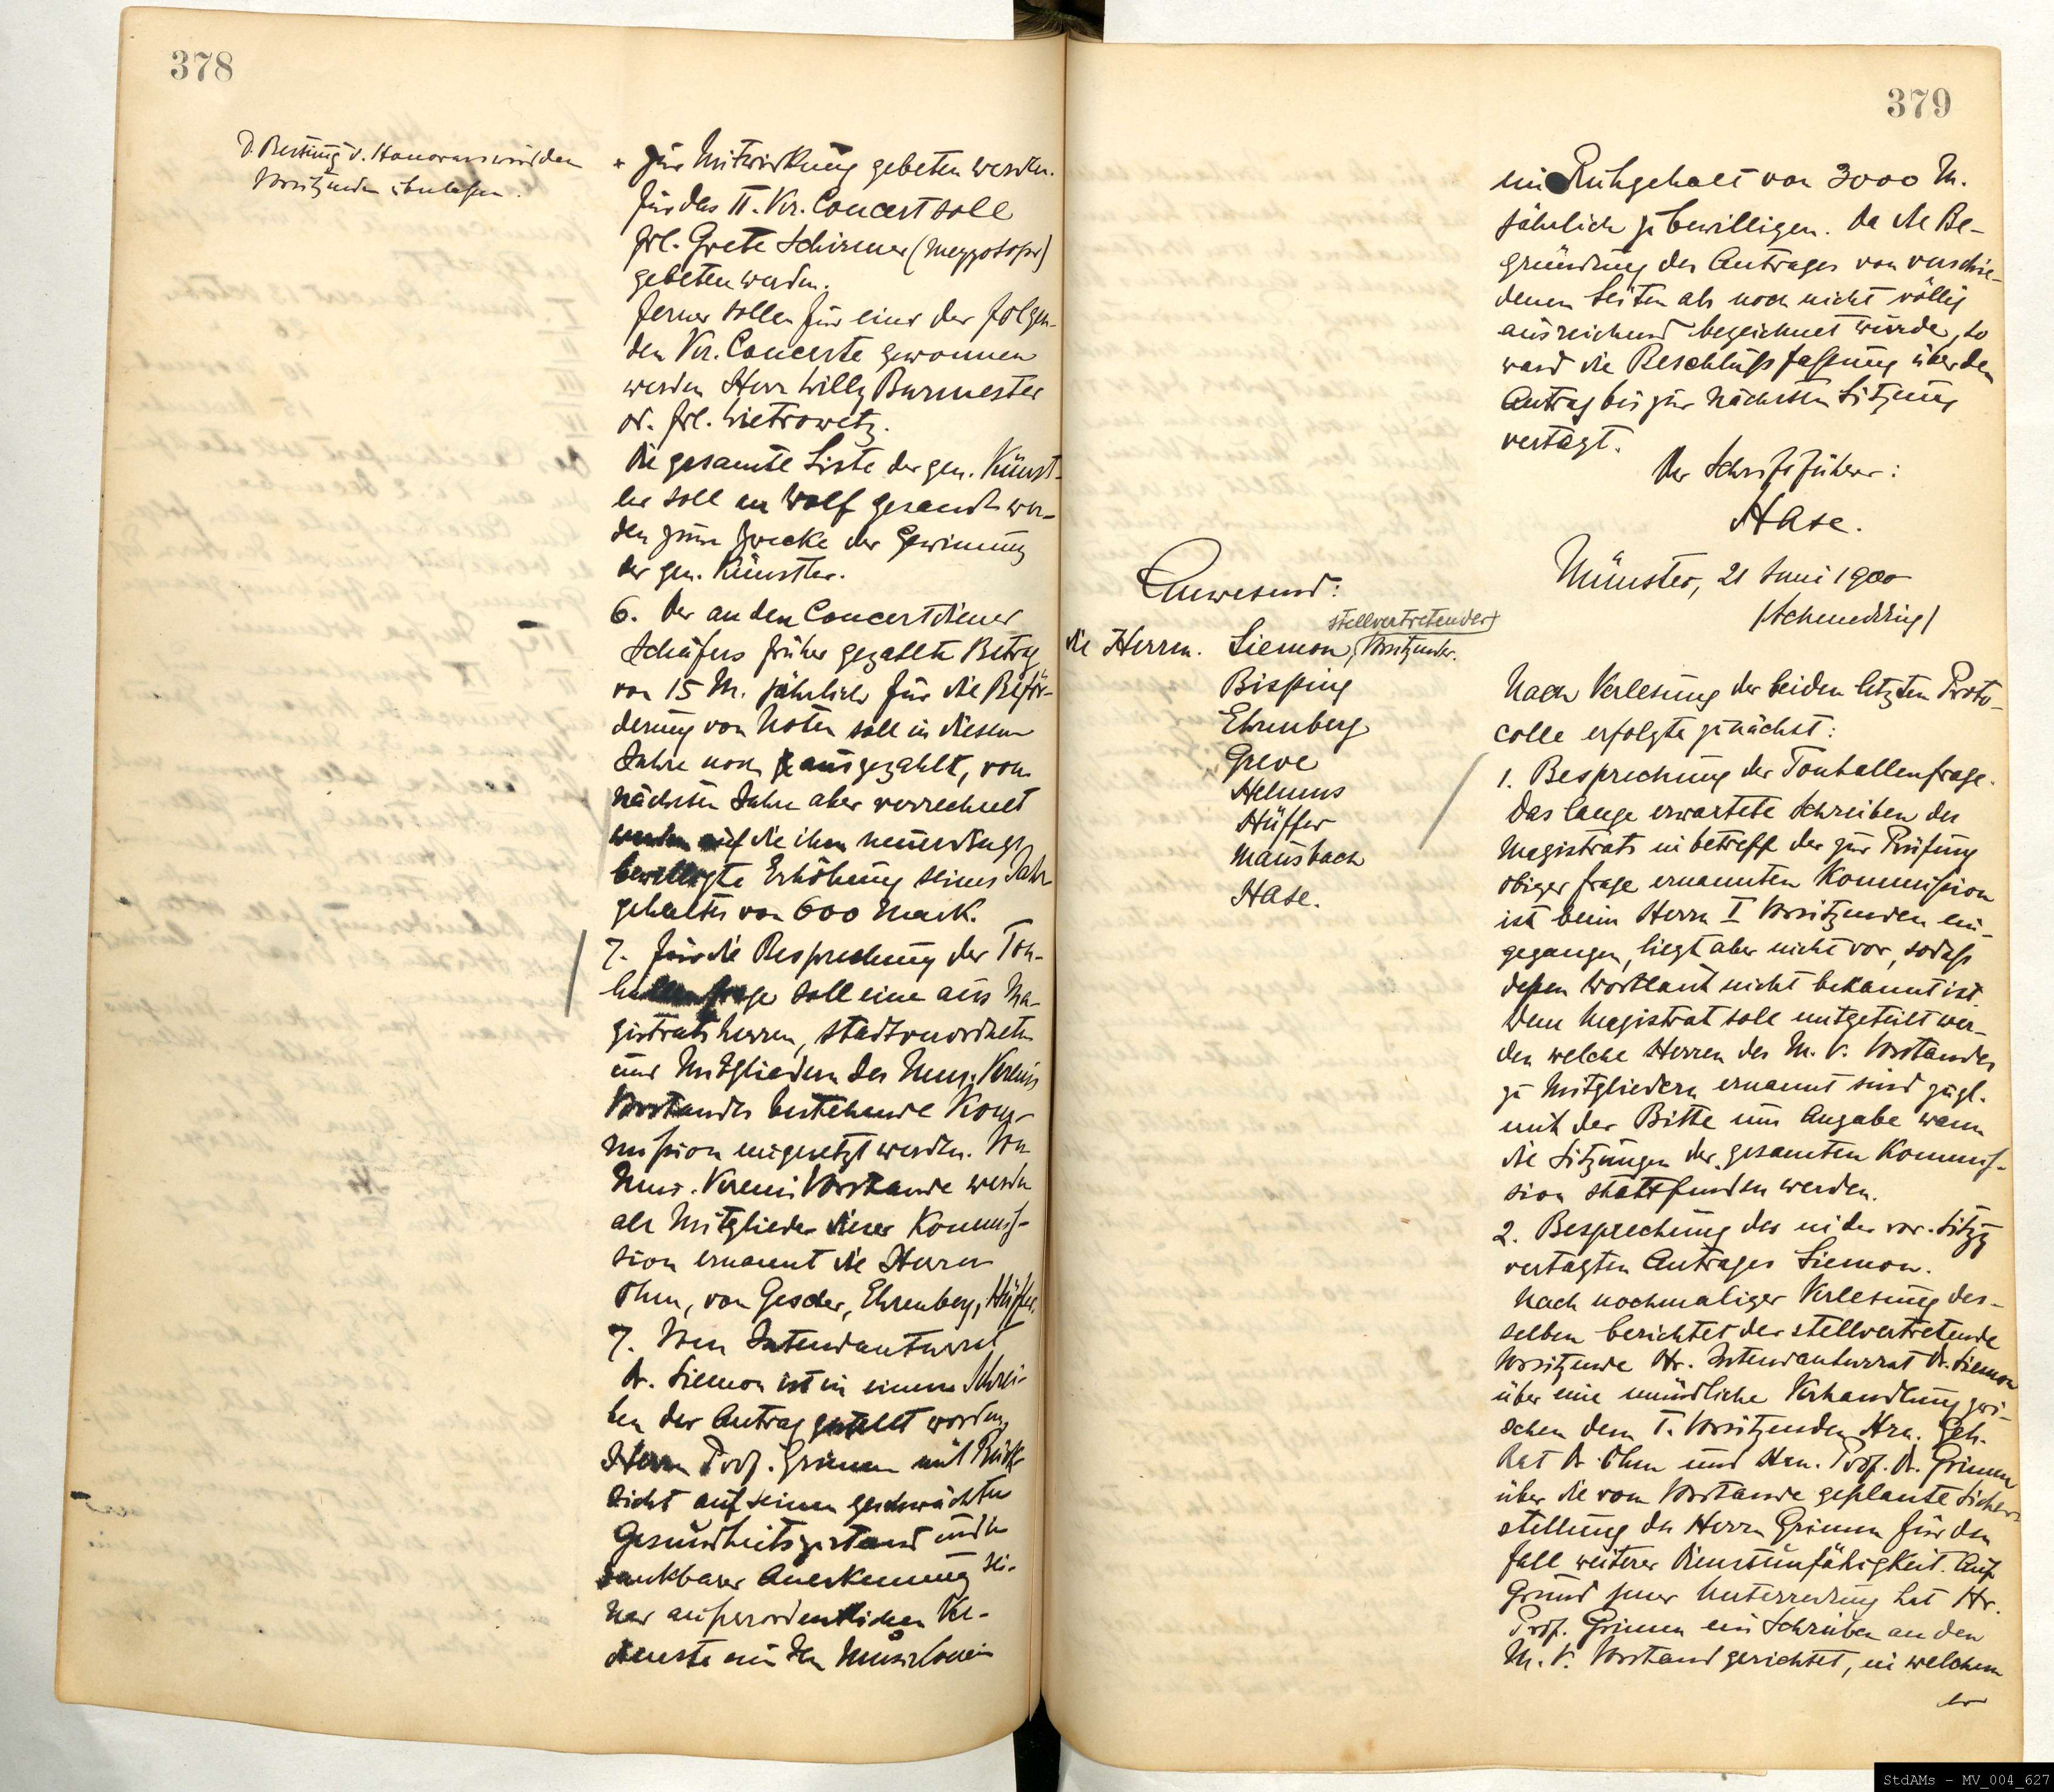 378
D. Bestimg d. Honorars wird dem
Vorsitzenden überlassen.
* zur Mitwirkung gebeten werden.
Für das II. Ver. Concert soll
Frl. Grete Schirmer (Mezzosopr)
gebeten werden.
Ferner sollen für eins der folgen-
den Ver. Concerte gewonnen
werden Herr Willy Burmester
od. Frl. Wietrowetz.
Die gesamte Liste der gen. Künst-
ler soll an Wolf gesandt wer-
den zum Zwecke der Gewinnung
der gen. Künstler.
6. Der an den Concertdiener
Schäfers früher gezahlte Betrag
von 15 M. jährlich für die Beför-
derung von Noten soll in diesem
Jahre noch ausgezahlt, vom
nächsten Jahre aber verrechnet
werden auf die ihm neuerdings
bewilligte Erhöhung seines Jahr-
gehaltes von 600 Mark.
7. Für die Besprechung der Ton-
hallenfrage soll eine aus Ma-
gistratsherren, Stadtverordneten
und Mitgliedern des Mus. Vereins
Vorstandes bestehende Kom-
mission eingesetzt werden. Vom
Mus. Vereins Vorstande werden
als Mitglieder dieser Kommis-
sion ernannt die Herren
Ohm, von Gescher, Ehrenberg, Hüffer.
7. Vom Intendanturrat
Dr. Siemon ist in einem Schrei-
ben der Antrag gestellt worden,
Herrn Prof. Grimm mit Rück-
sicht auf seinen geschwächten
Gesundheitszustand und in
dankbarer Anerkennung sei-
ner außerordentlichen Ver-
dienste um den Musikverein
379
ein Ruhgehalt von 3000 M.
jährlich zu bewilligen. Da die Be-
gründung des Antrages von verschie-
denen Seiten als noch nicht völlig
ausreichend bezeichnet wurde, so
ward die Beschlußfassung über den
Antrag bis zur nächsten Sitzung
vertagt.
Der Schriftführer:
Hase.
Münster, 21 Juni 1900
(Schmedding)
Anwesend:
stellvertretender
die Herren. Siemon, Vorsitzender.
Bisping
Ehrenberg
Greve
Helmus
Hüffer
Mausbach
Hase.
Nach Verlesung der beiden letzten Proto-
colle erfolgte zunächst:
1. Besprechung der Tonhallenfrage.
Das lange erwartete Schreiben des
Magistrats in betreff der zur Prüfung
obiger Frage ernannten Kommission
ist beim Herrn I Vorsitzenden ein-
gegangen, liegt aber nicht vor, sodaß
dessen Wortlaut nicht bekannt ist.
Dem Magistrat soll mitgeteilt wer-
den welche Herren des M. V. Vorstandes
zu Mitgliedern ernannt sind zugl.
mit der Bitte um Angabe wann
die Sitzungen der gesamten Kommis-
sion stattfinden werden.
2. Besprechung des in der vor. Sitzg
vertagten Antrages Siemon.
Nach nochmaliger Verlesung des-
selben berichtet der stellvertretende
Vorsitzende Hr. Intendanturrat Dr. Siemon
über eine mündliche Verhandlung zwi-
schen dem I. Vorsitzenden Hrn. Geh.
Rat Dr. Ohm und Hrn. Prof. Dr. Grimm
über die vom Vorstande geplante Sicher-
stellung des Herrn Grimm für den
Fall weiterer Dienstunfähigkeit. Auf
Grund jener Unterredung hat Hr.
Prof. Grimm ein Schreiben an den
M. V. Vorstand gerichtet, in welchem
er
StdAMs - MV_004_627